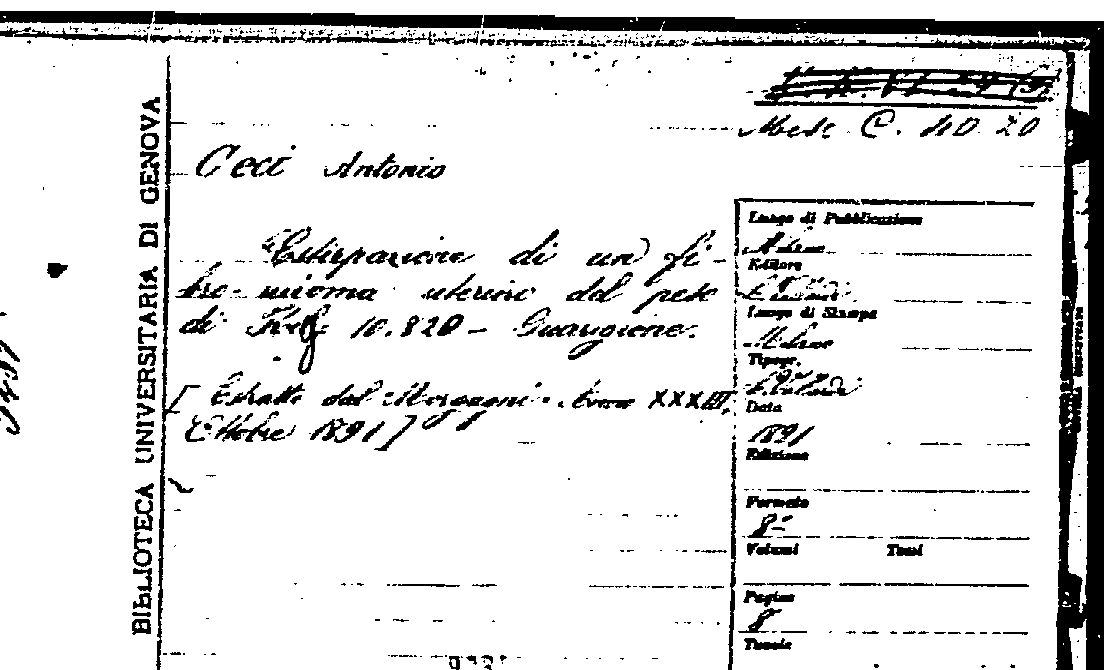 BIBLIOTECA UNIVERSITARIA DI GENOVA
Misc C. 40 20
Ceci Antonio
Estirpazione di un fi-
bro-mioma uterino del peso
di Kg 10.820 - Guarigione.
[Estratto dal Morgagni. Anno XXXIII,
Ottobre 1891]
Luogo di Pubblicazione
Milano
Editore
Luogo di Stampa
Milano
Tipogr.
Data
1891
Edizione
Formato
8°
Volumi Tomi
Pagine
8
Tavole